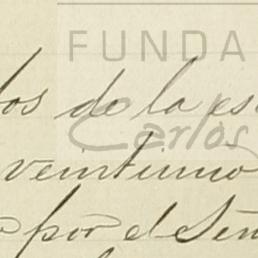 FUNDA
dos de la es
Carlos
veintiuno
por el Señ